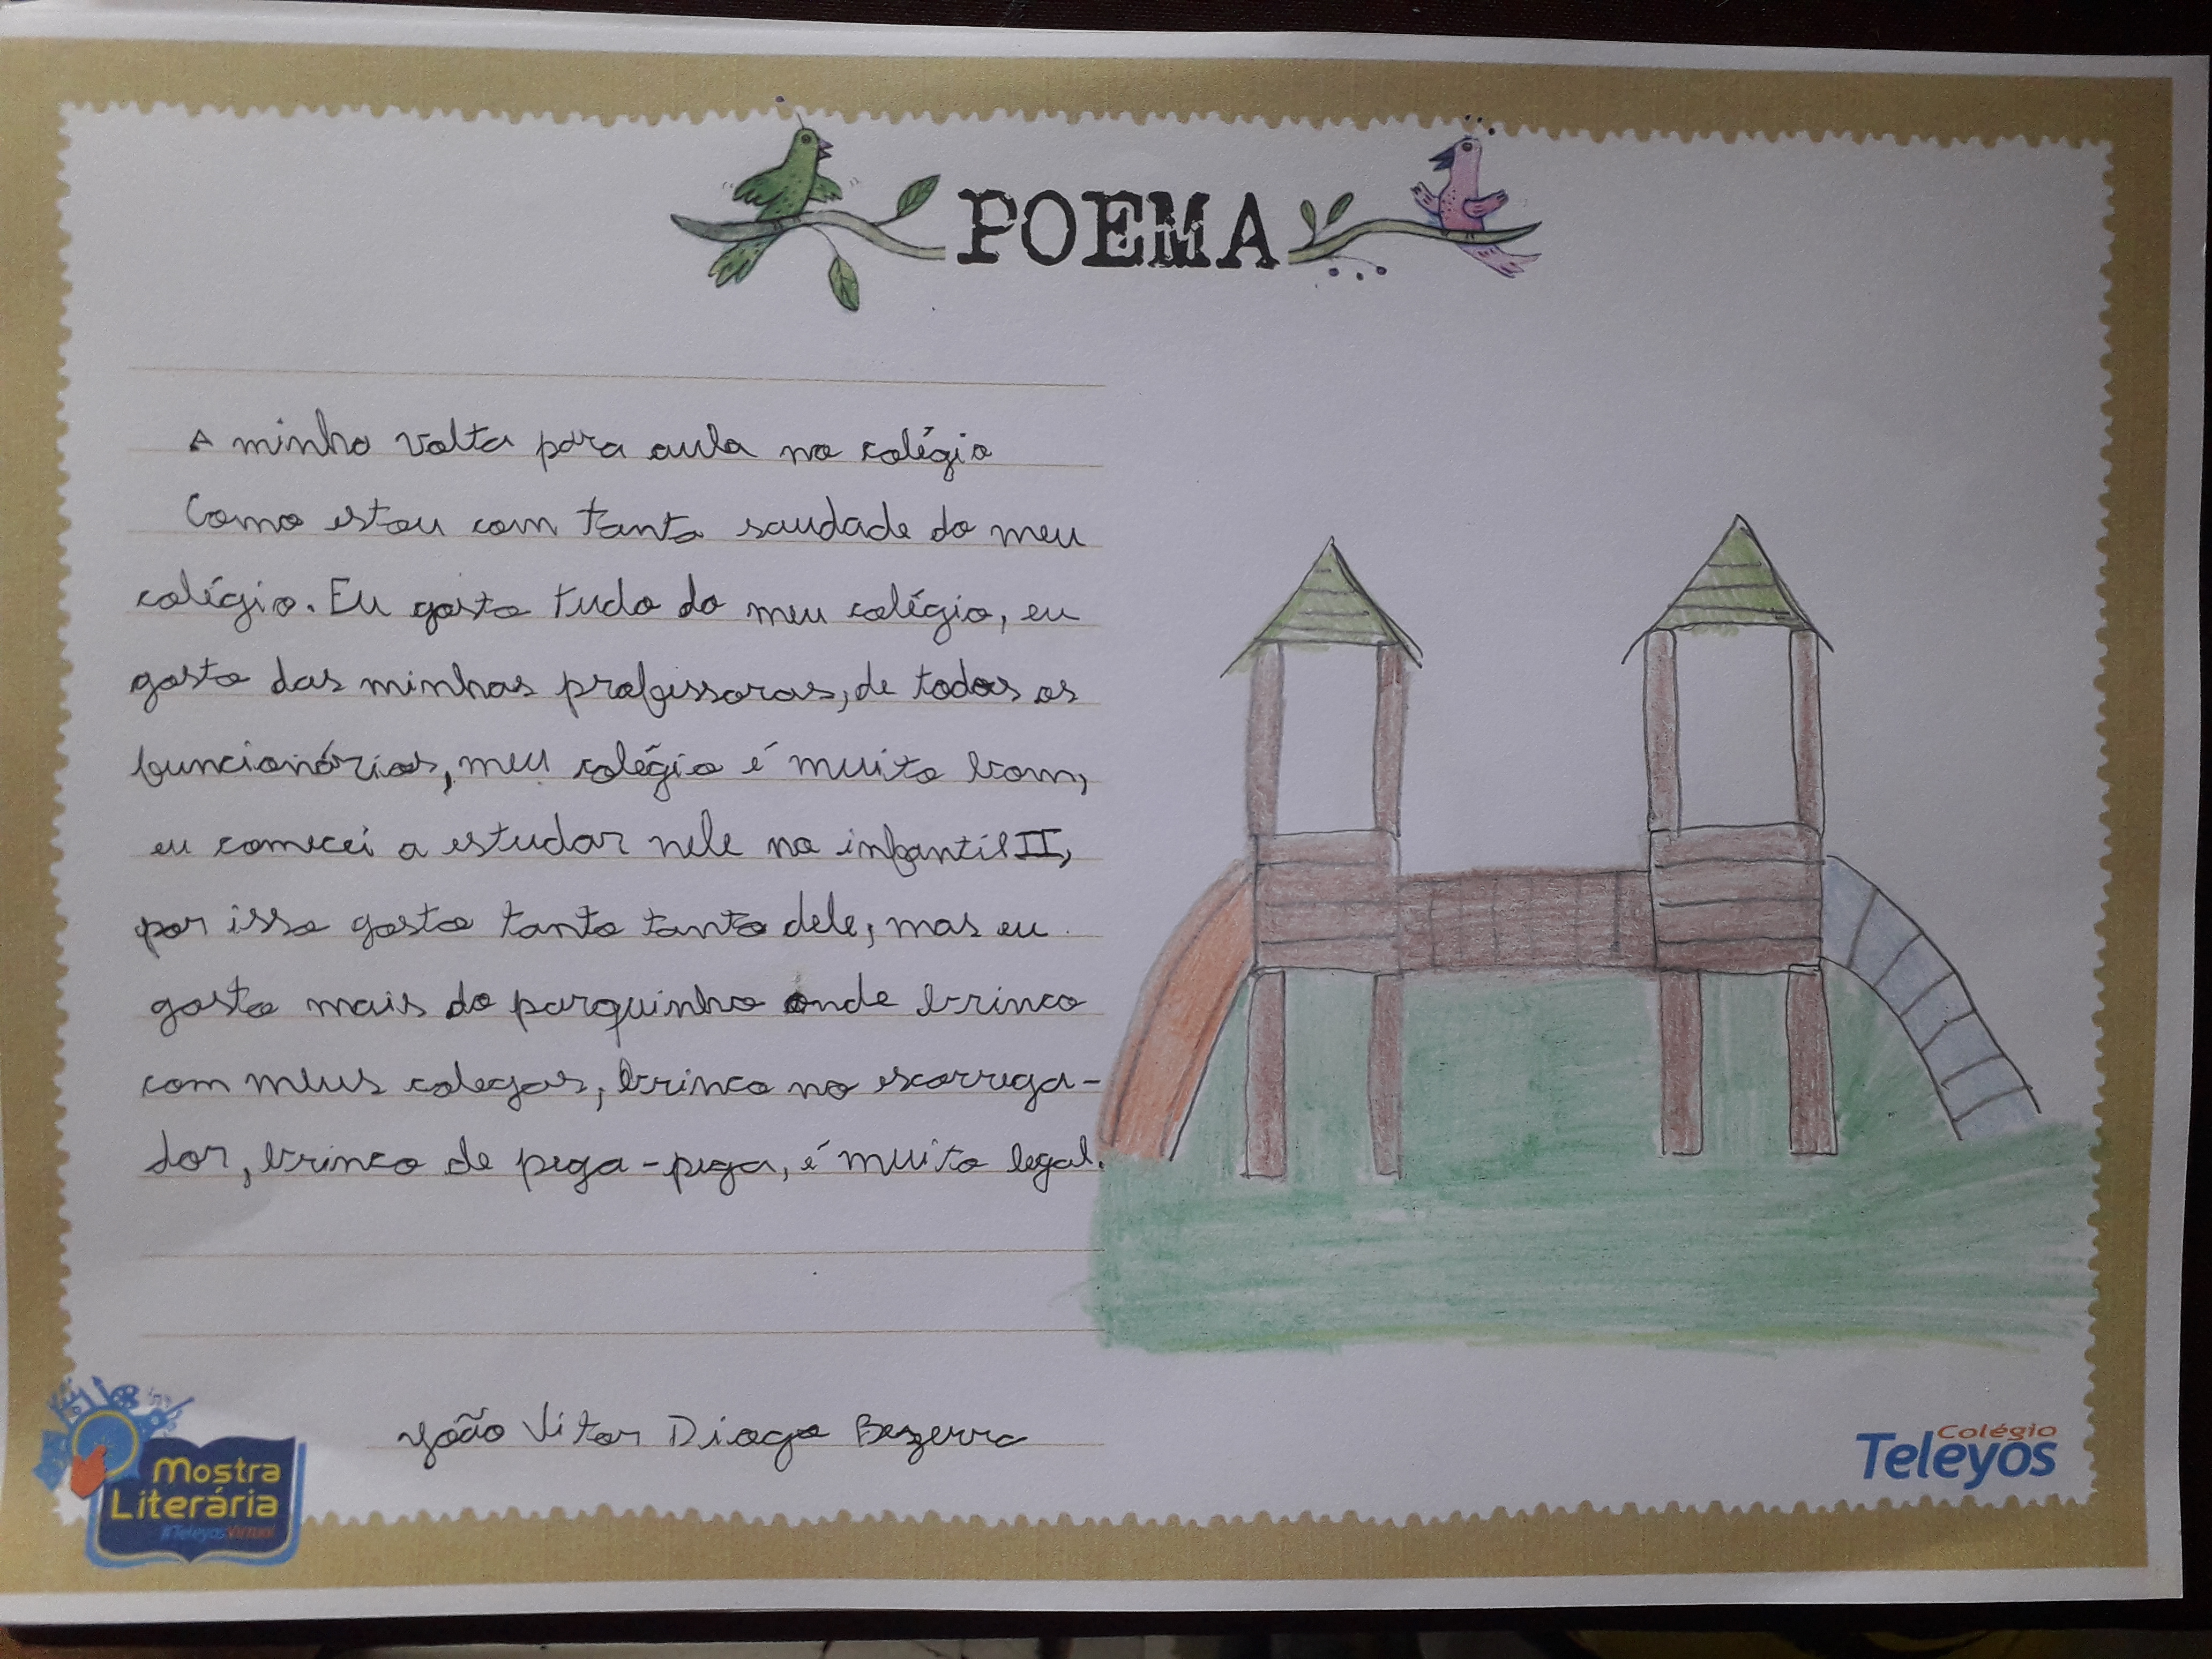 POEMA
A minha volta para aula no colégio
Como estou com tanta saudade do meu
colégio. Eu gosto tudo do meu colégio, eu
gosto das minhas professoras, de todos os
funcionários, meu colégio é muito bom,
eu comecei a estudar nele no infantil II,
por isso gosto tanto tanto dele, mas eu
gosto mais do parquinho onde brinco
com meus colegas, brinco no escorrega-
dor, brinco de pega-pega, é muito legal.
João Vitor Diogo Bezerra
Mostra
Literária
#TeleyosVirtual
Colégio
Teleyos